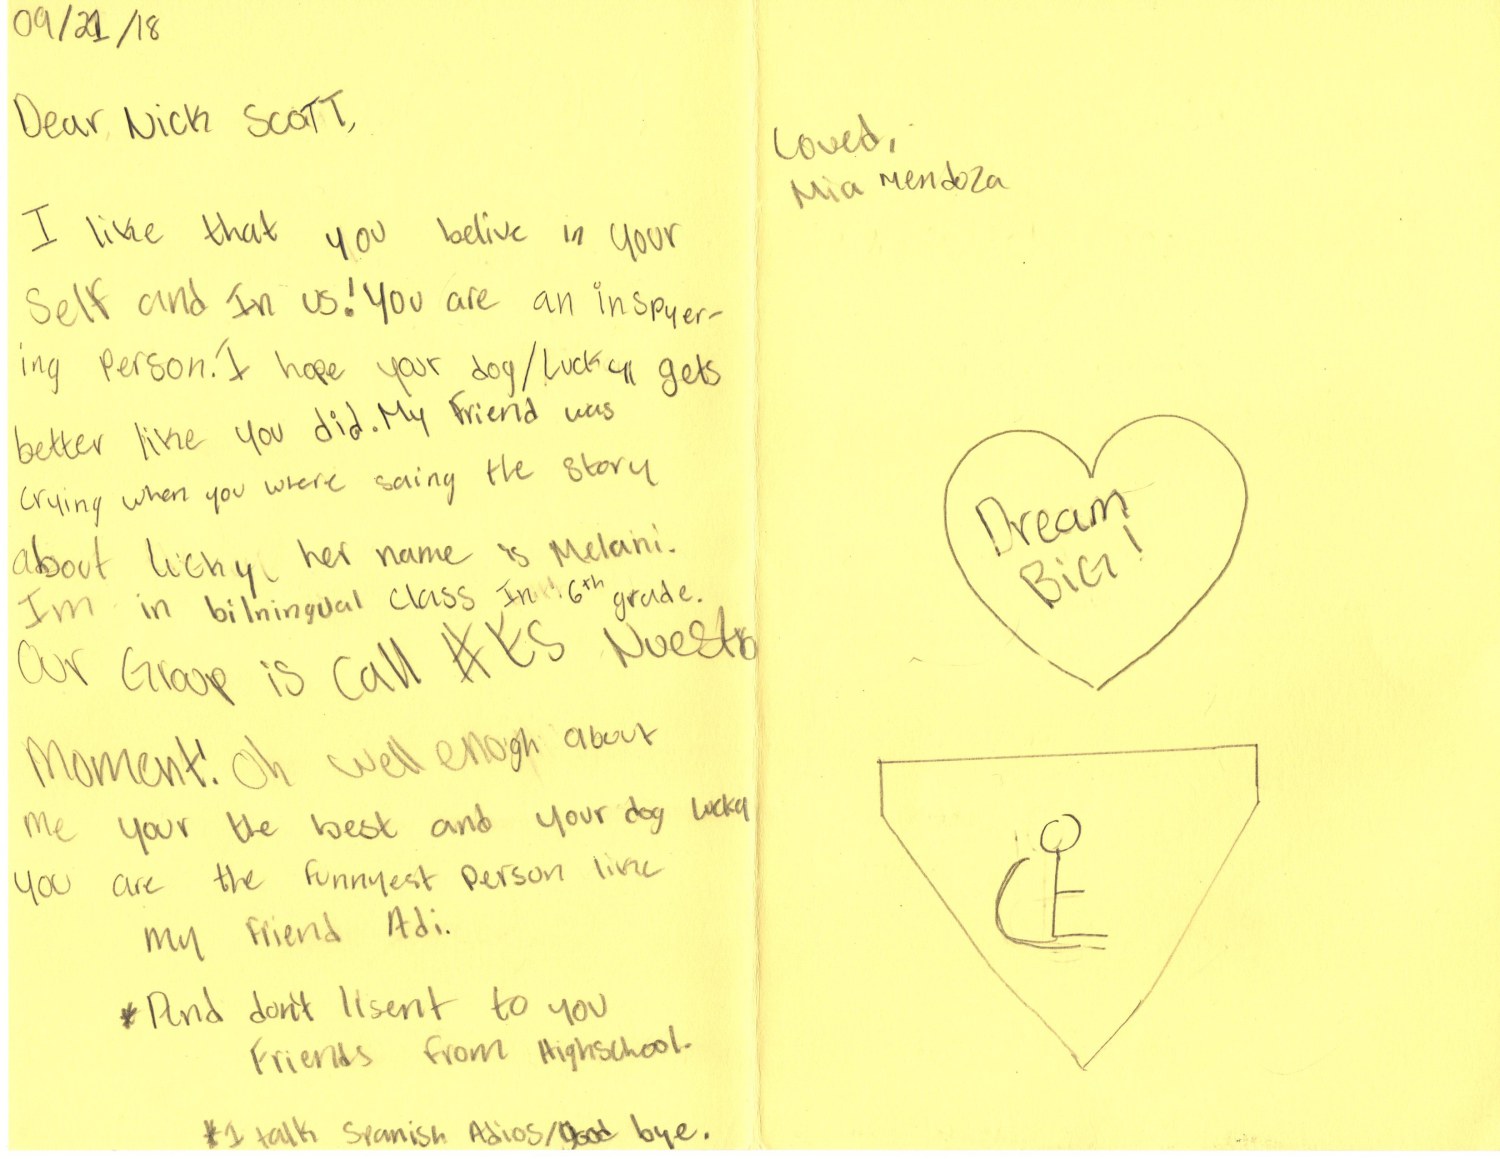 09/21/18
Dear Nick Scott,
I like that you belive in your
Self and In us! You are an inspyer-
ing person. I hope your dog/Lucky gets
better like you did. My friend was
crying when you where saing the story
about lucky, her name is Melani.
Im in bilningual class In 6th grade.
Our Group is call #ES Nuestro
Moment! Oh well enough about
me your the best and your dog lucky
you are the funnyest person like
my friend Adi.
*And don't lisent to you
friends from Highschool.
*I talk Spanish Adios/Good bye.
Loved,
Mia Mendoza
Dream
BiG!